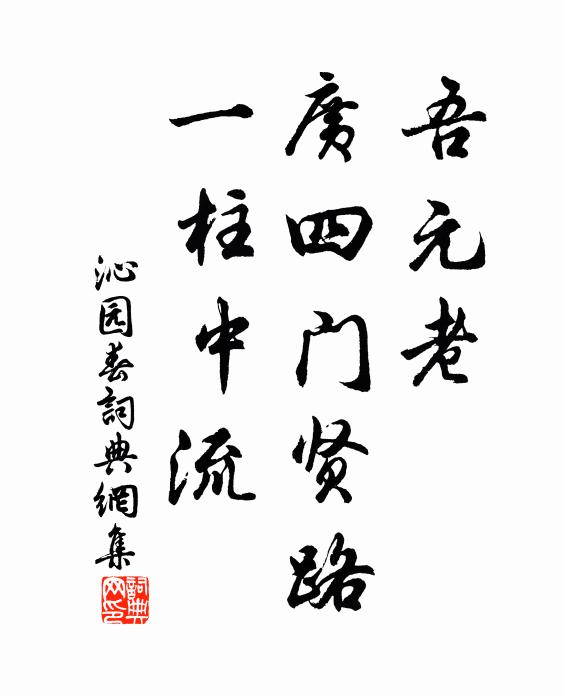 吾元老
廣四门贤路
一柱中流
沁园春詞典網集
詞典
网印